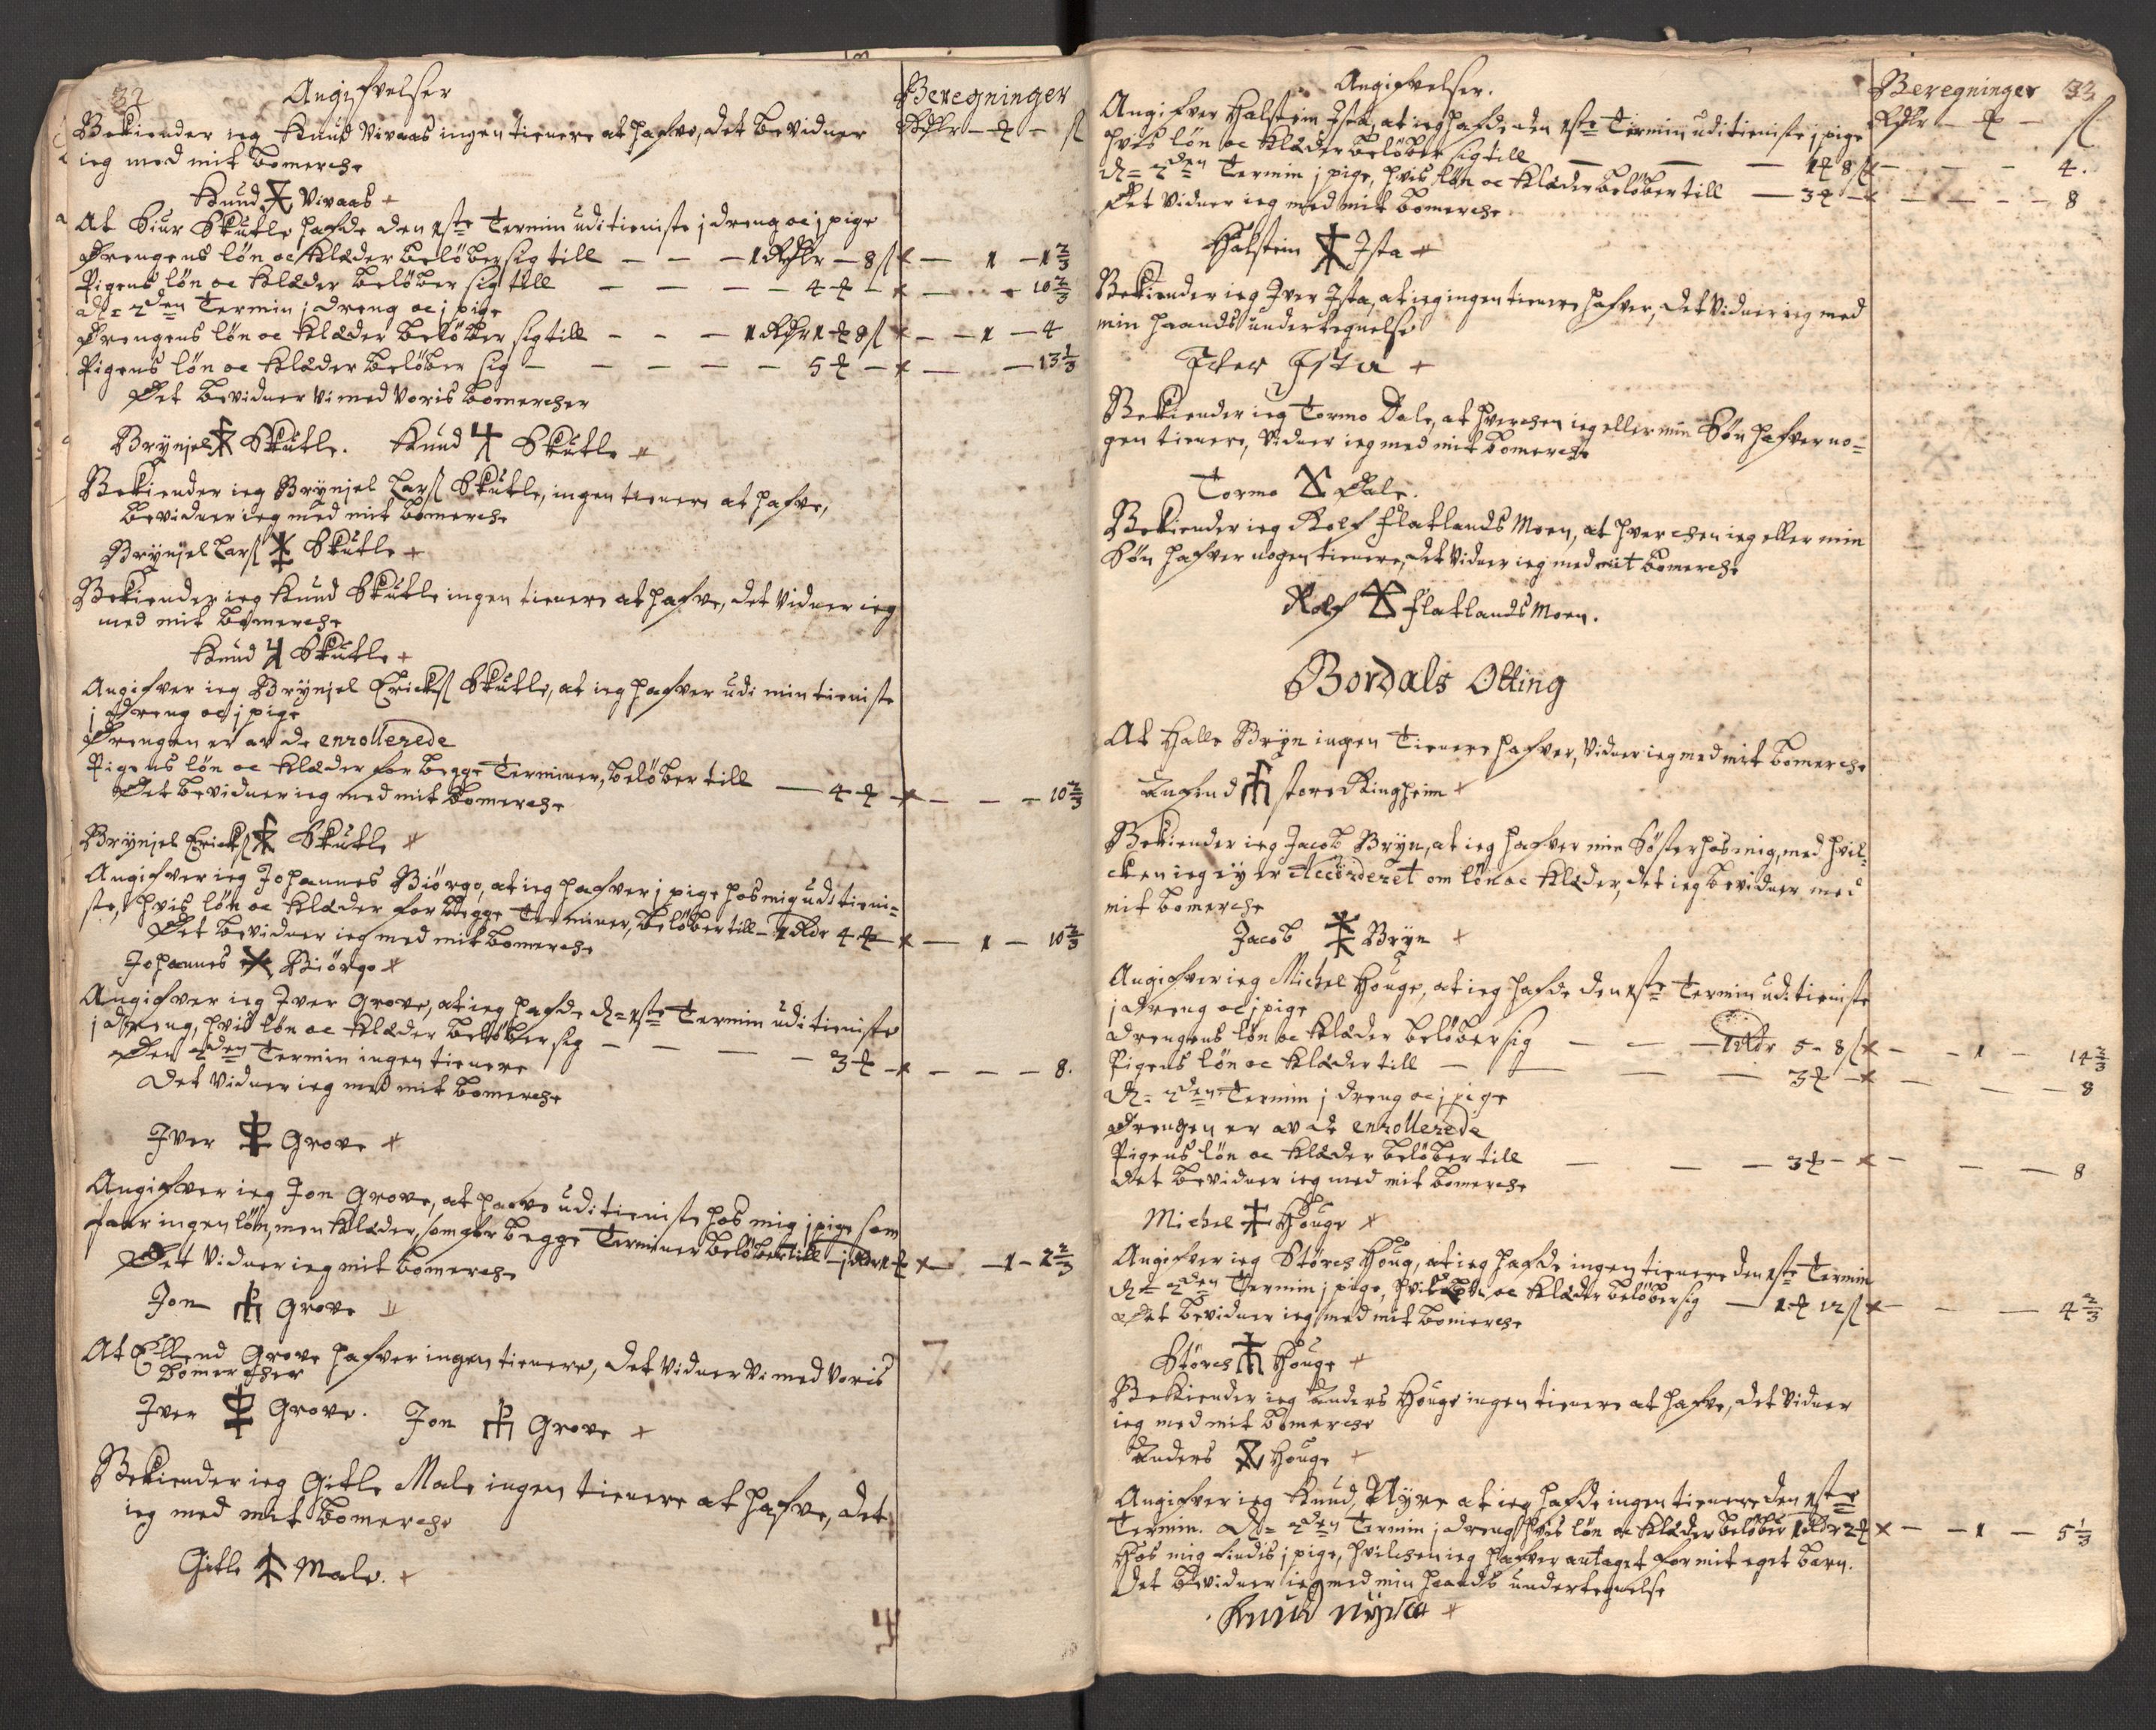 32
Angifvelser
Beregninger
Bekiender ieg Knud Vivaas ingen tienere at hafve, det bevidner
Rdlr — — ß
ieg med mit bomerche
Knud Vivaas
At Siur Skutle hafde den 1ste Termin udi tieniste j dreng oc j pige
Drengens lön oc Klæder belöber sig till — — — 1 Rdlr — 8 ß — 1 — 1 2/3
Pigens lön oc Klæder belöber sig till — — — — 4 — — 10 2/3
d= 2den Termin j dreng oc j pige
Drengens lön oc Klæder belöber sig till — — — 1 Rdlr 1 8 ß — 1 — 4
Pigens lön oc Klæder belöber sig — — — — — 5 — — 13 1/3
Det bevidner vi med voris bomercher
Brynjel Skutle. Knud Skutle
Bekiender ieg Brynjel Larß Skutle, ingen tienere at hafve,
bevidner ieg med mit bomerche
Brynjel Larß Skutle
Bekiender ieg Knud Skutle ingen tienere at hafve, det vidner ieg
med mit bomerche
Knud Skutle
Angifver ieg Brynjel Erickß Skutle, at ieg hafver udi min tieniste
j dreng oc j pige
Drengen er av de enrollerede
Pigens lön oc Klæder for begge Terminer, belöber till — 4 — — — 10 2/3
Det bevidner ieg med mit bomerche
Brynjel Erickß Skutle
Angifver ieg Johannes Biörgo, at ieg hafver j pige hos mig udi tieni=
ste, hvis lön oc Klæder for begge Terminer, belöber till — 1 Rdr 4 — 1 — 10 2/3
Det bevidner ieg med mit bomerche
Johannes Biörgo
Angifver ieg Iver Grove, at ieg hafde d= 1ste Termin udi tieniste
j dreng, hvis lön oc Klæder belöber sig — — — — 3 — — — 8.
Den 2den Termin ingen tienere
Det vidner ieg med mit bomerche
Iver Grove
Angifver ieg Jon Grove, at hafve udi tieniste hos mig j pige som
faar ingen lön, men Klæder, som for begge Terminer belöber till — j Rdr — 1 — 2 2/3
Det vidner ieg mit bomerche
Jon Grove
At Ellend Grove hafver ingen tienere, det vidner vi med voris
bomercher
Iver Grove. Jon Grove
Bekiender ieg Gitle Male ingen tienere at hafve, det
ieg med mit bomerche
Gitle Male.
Angifvelser.
Beregninger 33
Angifver Halstein Ista, at ieg hafde den 1ste Termin udi tieniste j pige
Rdlr — — ß
hvis lön oc Klæder belöber sig till — — — 1 8 ß — — 4.
d= 2den Termin j pige, hvis lön oc Klæder belöber till — 3 — — — 8
Det vidner ieg med mit bomerche
Halstein Ista
Bekiender ieg Iver Ista, at ieg ingen tienere hafver, det vidner ieg med
min haands undertegnelse
Ifver Ista
Bekiender ieg Tormo Dale, at hverchen ieg eller min Sön hafver no=
gen tienere, vidner ieg med mit bomerche
Tormo Dale.
Bekiender ieg Rolf Flatlands Moen, at hverchen ieg eller min
Sön hafver nogen tienere, det vidner ieg med mit bomerche
Rolf Flatlands Moen.
Bordals Otting
At Halle Bryn ingen Tienere hafver, vidner ieg med mit bomerche
store Ringheim
Bekiender ieg Jacob Bryn, at ieg hafver min Söster hos mig, med hvil=
chen ieg ey er Accorderet om lön oc Klæder, det ieg bevidner med
mit bomerche
Jacob Bryn
Angifver ieg Michel Houge, at ieg hafde den 1ste Termin udi tieniste
j dreng oc j pige
drengens lön oc Klæder belöber sig — — 1 Rdr 5 - 8 ß — 1 — 14 2/3
Pigens lön oc Klæder till — — — — 3 — — — 8
d= 2den Termin j dreng oc j pige
Drengen er av de enrollerede
Pigens lön oc Klæder belöber till — — — 3 — — — 8
det bevidner ieg med mit bomerche
Michel Houge
Angifver ieg Störch Houg, at ieg hafde ingen tienere den 1ste Termin
d= 2den Termin j pige, hvis lön oc Klæder belöber sig — 1 12 ß — — 4 2/3
Det bevidner ieg med mit bomerche
Störch Houge
Bekiender ieg Anders Houge ingen tienere at hafve, det vidner
ieg med mit bomerche
Anders Houge
Angifver ieg Knud Nyre at ieg hafde ingen tienere den 1ste
Termin. d= 2den Termin j dreng hvis lön oc Klæder belöber 1 Rdr 2 — 1 — 5 1/3
Hos mig findis j pige, hvilchen ieg hafver antaget for mit eget barn.
Det bevidner ieg med min haands undertegnelse
Knud Nyre